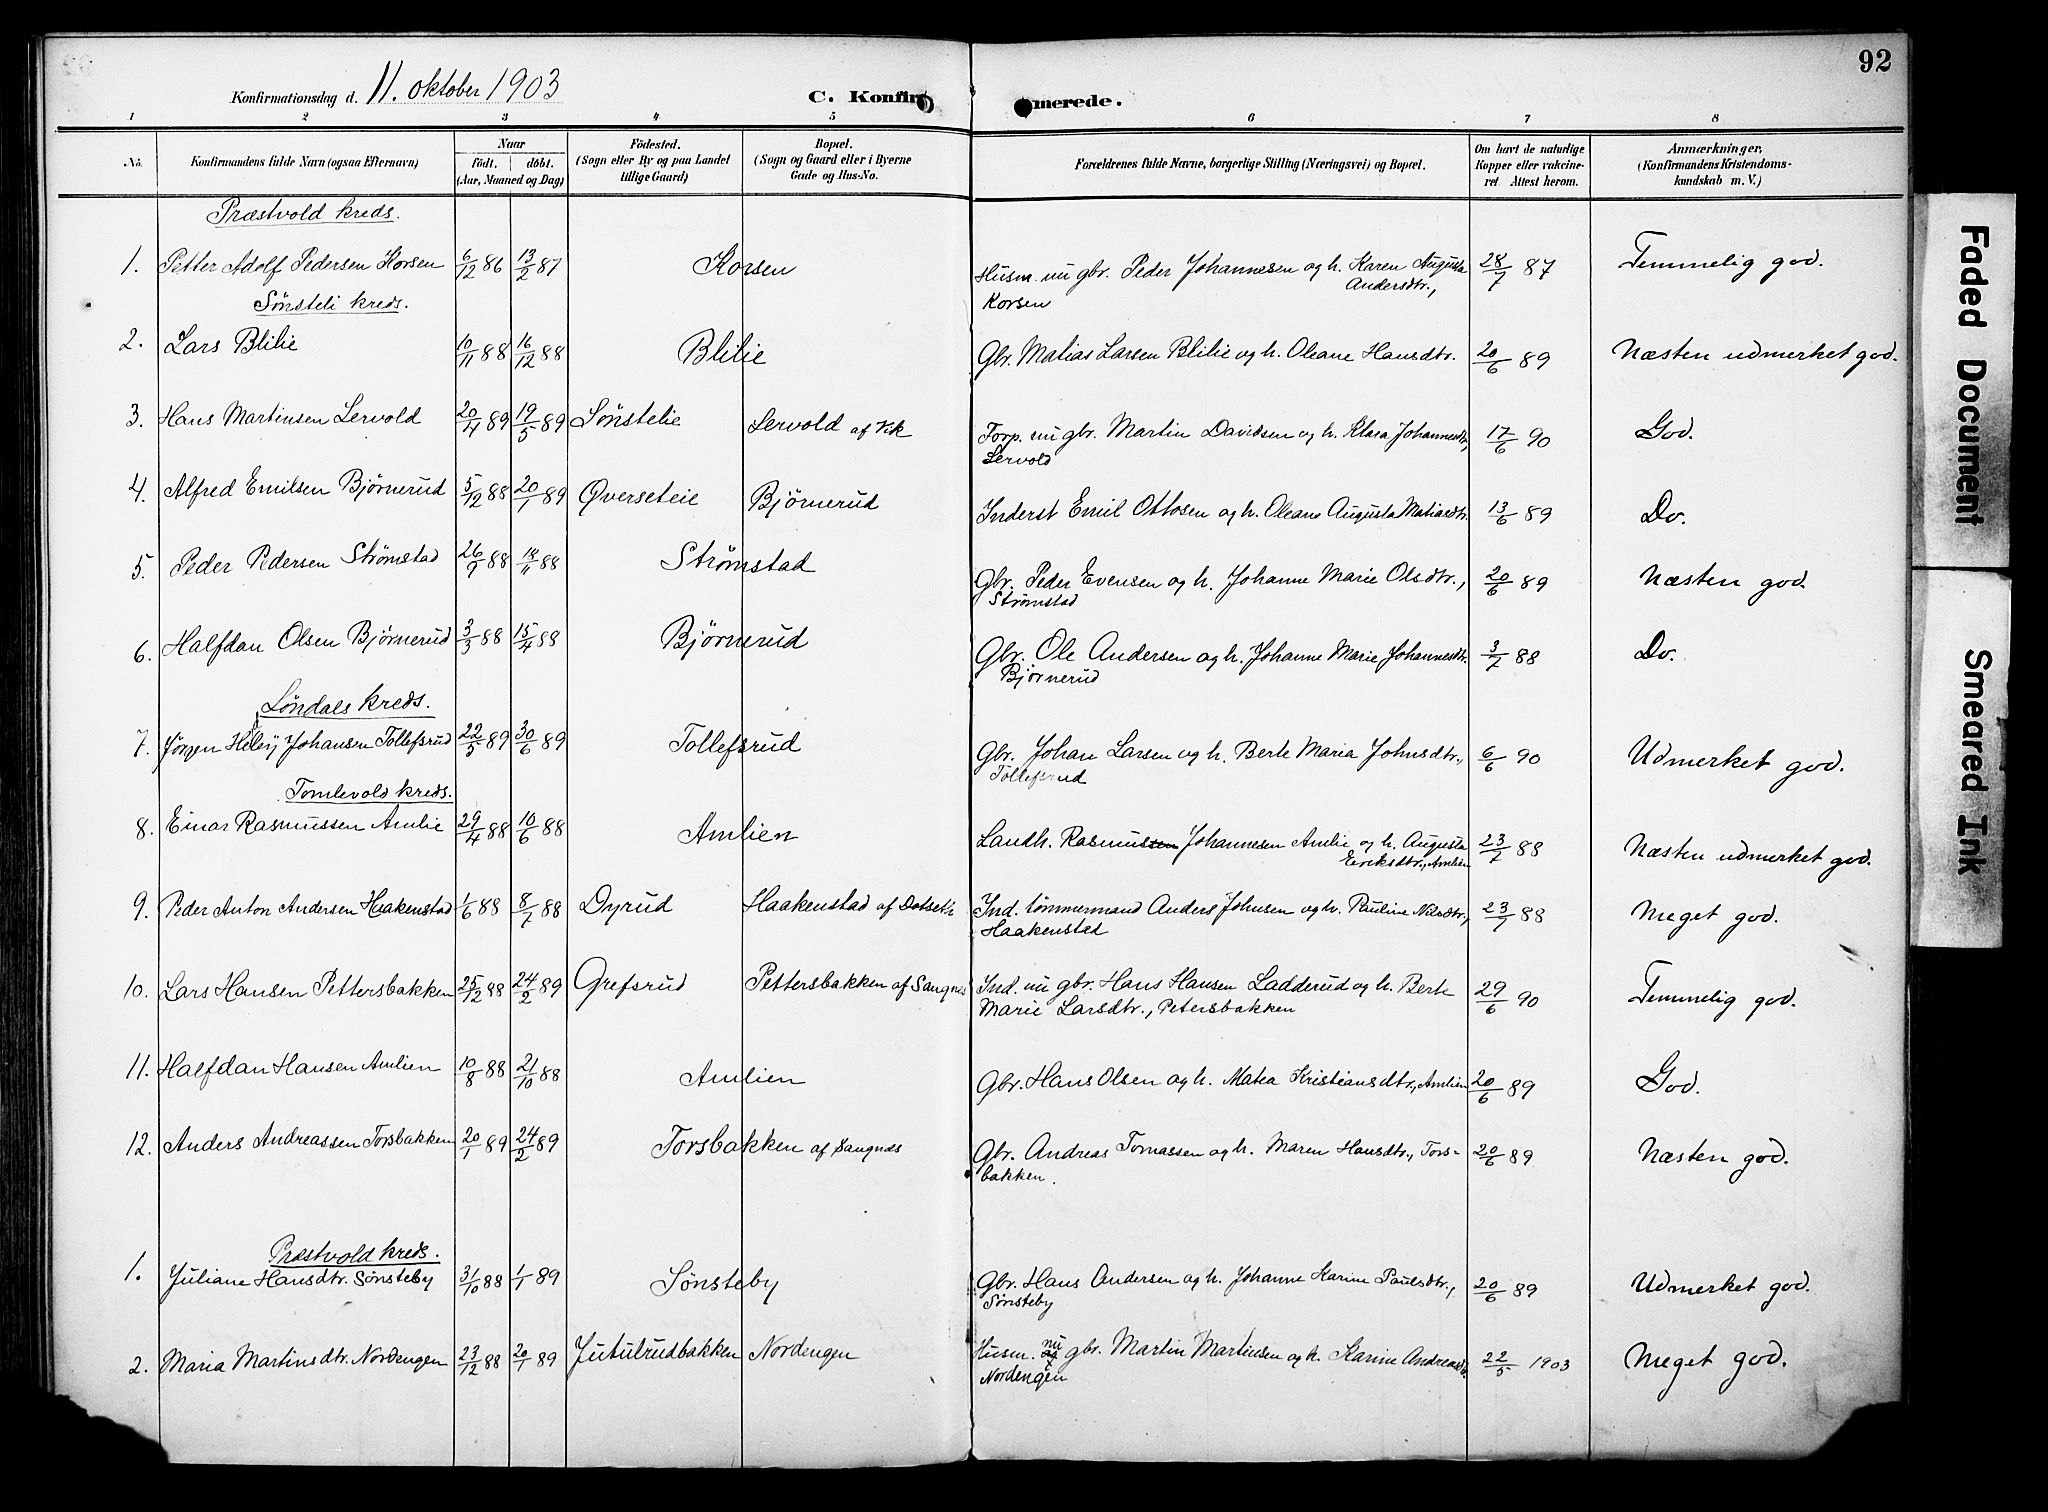 92
Konfirmationsdag d. 11. oktober 1903 C. Konfirmerede.
1 2 3 4 5 6 7 8
No. Konfirmandens fulde Navn (ogsaa Efternavn) Naar født. døbt. (Aar, Maaned og Dag) Fødested. (Sogn eller By og paa Landet tillige Gaard) Bopæl. (Sogn og Gaard eller i Byerne Gade og Hus-No. Forældrenes fulde Navne, borgerlige Stilling (Næringsvei) og Bopæl. Om havt de naturlige Kopper eller vakcineret Attest herom. Anmærkninger, (Konfirmandens Kristendomskundskab m. V.)
Præstvold kreds.
1. Petter Adolf Pedersen Korsen 6/12 86 13/2 87 Korsen Husm. nu gbr. Peder Johannesen og h. Karen Augusta Andersdtr., Korsen 28/7 87 Temmelig god.
Sønsteli kreds.
2. Lars Blilie 10/11 88 16/12 88 Blilie Gbr. Matias Larsen Blilie og h. Oleane Hansdtr. 20/6 89 Næsten udmerket god.
3. Hans Martinsen Lervold 20/4 89 19/5 89 Sønstelie Lervold af Vik Forp. nu gbr. Martin Davidsen og h. Klara Johannesdtr., Lervold 17/6 90 God.
4. Alfred Emilsen Bjørnerud 5/12 88 20/1 89 Øverseteie Bjørnerud Inderst Emil Ottosen og h. Oleane Augusta Matiasdtr. 13/6 89 Do.
5. Peder Pedersen Strømstad 26/9 88 18/11 88 Strømstad Gbr. Peder Evensen og h. Johanne Marie Olsdtr., Strømstad 20/6 89 Næsten god.
6. Halfdan Olsen Bjørnerud 3/3 88 15/4 88 Bjørnerud Gbr. Ole Andersen og h. Johanne Marie Johannesdtr. Bjørnerud 3/7 88 Do.
Løndals kreds.
7. Jørgen Johansen Tollefsrud 22/5 89 30/6 89 Tollefsrud Gbr. Johan Larsen og h. Berte Maria Johnsdtr., Tollefsrud 6/6 90 Udmerket god.
Tomlevold kreds.
8. Einar Rasmussen Amlie 29/4 88 10/6 88 Amlien Landh. Rasmus Johannesen Amlie og h. Augusta Eriksdtr., Amlien 23/7 88 Næsten udmerket god.
9. Peder Anton Andersen Haakenstad 1/6 88 8/7 88 Dyrud Haakenstad af Dotseth Ind. tømmermand Anders Johnsen og h. Pauline Nilsdtr., Haakenstad 23/7 88 Meget god.
10. Lars Hansen Pettersbakken 25/12 88 24/2 89 Grefsrud Pettersbakken af Sangnes Ind. nu gbr. Hans Hansen Ladderud og h. Berte Marie Larsdtr., Petersbakken 29/6 90 Temmelig god.
11. Halfdan Hansen Amlien 10/8 88 21/10 88 Amlien Gbr. Hans Olsen og h. Matea Kristiansdtr., Amlien 20/6 89 God.
12. Anders Andreassen Torsbakken 20/1 89 24/2 89 Torsbakken af Sangnæs Gbr. Andreas Tomassen og h. Maren Hansdtr., Torsbakken. 20/6 89 Næsten god.
Præstvold kreds.
1. Juliane Hansdtr. Sønsteby 31/10 88 1/1 89 Sønsteby Gbr. Hans Andersen og h. Johanne Karine Paulsdtr., Sønsteby 20/6 89 Udmerket god.
2. Maria Martinsdtr. Nordengen 23/12 88 20/1 89 Jutulrudbakken Nordengen Husm. nu gbr. Martin Martinsen og h. Karine Andreasdtr. Nordengen 22/5 1903 Meget god.
Faded Document
Smeared Ink